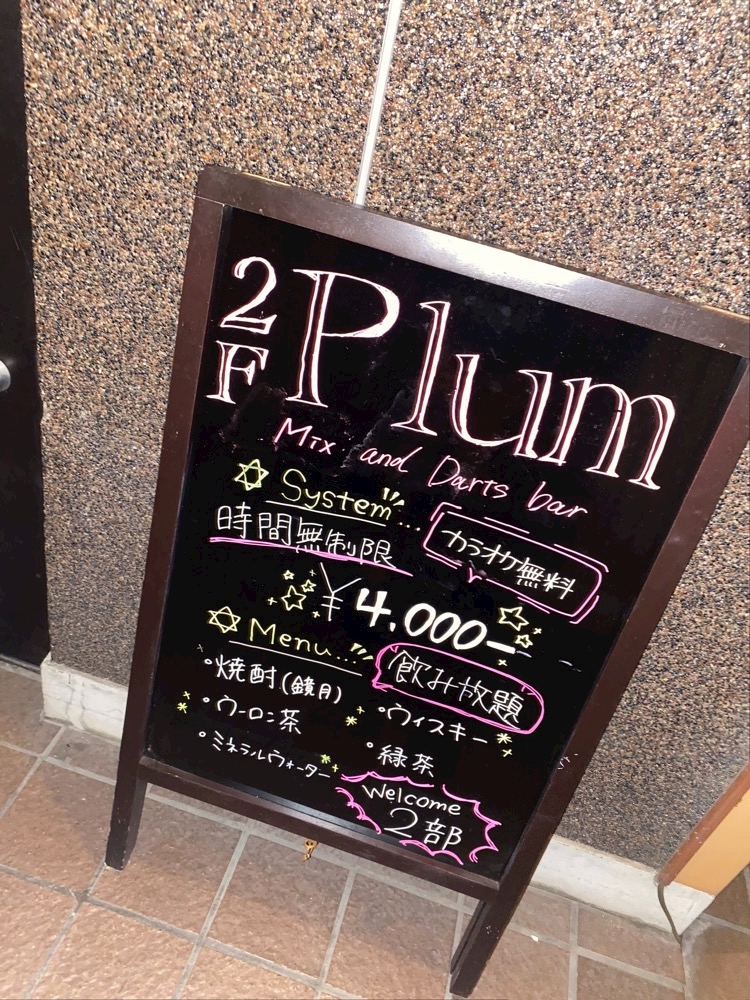 2F Plum
Mix and Darts bar
System...
時間無制限
カラオケ無料
¥4,000-
Menu...
飲み放題
・焼酎(鏡月)
・ウィスキー
・ウーロン茶
・緑茶
・ミネラルウォーター
Welcome
2部